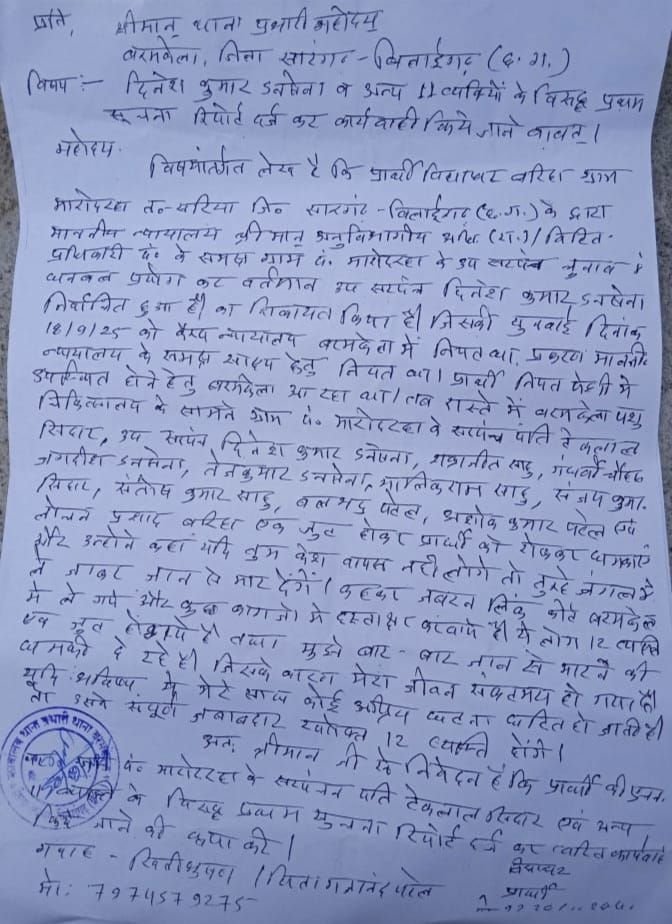 प्रति,
श्रीमान् थाना प्रभारी महोदय
बरमकेला, जिला सारंगढ़ - बिलाईगढ़ (छ.ग.)
विषय :- दिनेश कुमार डनसेना व अन्य 11 व्यक्तियों के विरूद्ध प्रथम
सूचना रिपोर्ट दर्ज कर कार्यवाही किये जाने बाबत् ।
महोदय
विषयांतर्गत लेख है कि प्रार्थी विद्याधर बरिहा ग्राम
के द्वारा
माननीय न्यायालय श्रीमान् अनुविभागीय अधि (रा.) / विहित
प्राधिकारी के समक्ष ग्राम पं. के उप सरपंच चुनाव में
धनबल प्रयोग कर वर्तमान उप सरपंच दिनेश कुमार डनसेना
निर्वाचित हुआ है। का शिकायत किया है। जिसकी सुनवाई दिनांक
18/9/25 को न्यायालय बरमकेला में नियत था, प्रकरण माननीय
न्यायालय के समक्ष साक्ष्य हेतु नियत था। प्रार्थी नियत पेशी में
उपस्थित होने हेतु बरमकेला आ रहा था। तब रास्ते में बरमकेला पशु
चिकित्सालय के सामने ग्राम पं. के सरपंच पति टेकलाल
सिदार, उप सरपंच दिनेश कुमार डनसेना, साहू,
डनसेना, तेजकुमार डनसेना, मालिकराम साहू, संजय कुमार
सिदार, संतोष कुमार साहू, बलभद्र पटेल, अशोक कुमार पटेल एवं
लोचन प्रसाद बरिहा एक जुट होकर प्रार्थी को रोककर धमकाए
और उन्होंने कहा यदि तुम केश वापस नहीं लोगे तो तुझे जंगल में
ले जाकर जान से मार देंगे। कहकर जबरन लिंक कोर्ट बरमकेला
में ले गये और कुछ कागजों में हस्ताक्षर करवाये है। ये लोग 12 व्यक्ति
एक जुट होकर तथा मुझे बार - बार जान से मारने की
धमकी दे रहे है। जिसके कारण मेरा जीवन संकटमय हो गया है।
यदि भविष्य में मेरे साथ कोई अप्रिय घटना घटित हो जाती है।
तो उसके संपूर्ण जवाबदार उपरोक्त 12 व्यक्ति होंगे।
अतः श्रीमान जी से निवेदन है कि प्रार्थी की
पं. के सरपंच पति टेकलाल सिदार एवं अन्य
के विरूद्ध प्रथम सूचना रिपोर्ट दर्ज कर त्वरित कार्यवाही
किये जाने की कृपा करें।
गवाह -
विद्याधर
प्रार्थी
मो: 7974579275